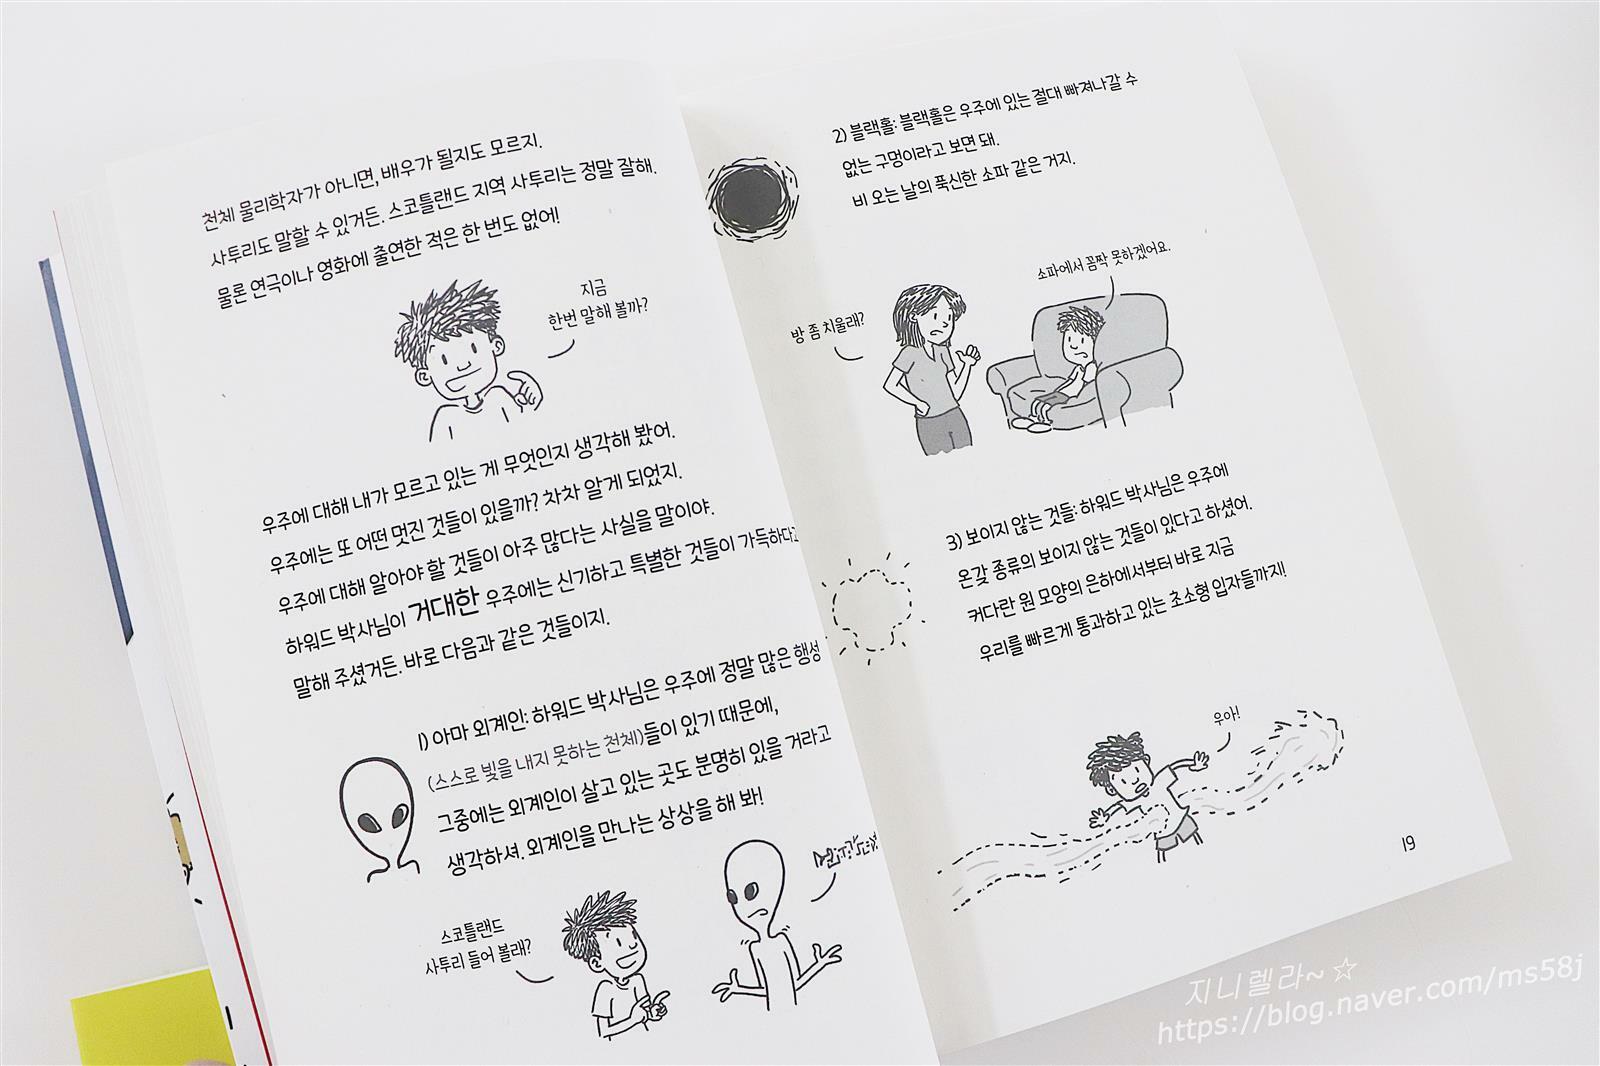 천체 물리학자가 아니면, 배우가 될지도 모르지.
사투리도 말할 수 있거든. 스코틀랜드 지역 사투리는 정말 잘해.
물론 연극이나 영화에 출연한 적은 한 번도 없어!
지금
한번 말해 볼까?
우주에 대해 내가 모르고 있는 게 무엇인지 생각해 봤어.
우주에는 또 어떤 멋진 것들이 있을까? 차차 알게 되었지.
우주에 대해 알아야 할 것들이 아주 많다는 사실을 말이야.
하워드 박사님이 거대한 우주에는 신기하고 특별한 것들이 가득하다고
말해 주셨거든. 바로 다음과 같은 것들이지.
1) 아마 외계인: 하워드 박사님은 우주에 정말 많은 행성
(스스로 빛을 내지 못하는 천체)들이 있기 때문에,
그중에는 외계인이 살고 있는 곳도 분명히 있을 거라고
생각하셔. 외계인을 만나는 상상을 해 봐!
스코틀랜드
사투리 들어 볼래?
2) 블랙홀: 블랙홀은 우주에 있는 절대 빠져나갈 수
없는 구멍이라고 보면 돼.
비 오는 날의 푹신한 소파 같은 거지.
방 좀 치울래?
소파에서 꼼짝 못하겠어요.
3) 보이지 않는 것들: 하워드 박사님은 우주에
온갖 종류의 보이지 않는 것들이 있다고 하셨어.
커다란 원 모양의 은하에서부터 바로 지금
우리를 빠르게 통과하고 있는 초소형 입자들까지!
우아!
19
지니렐라~☆
https://blog.naver.com/ms58j